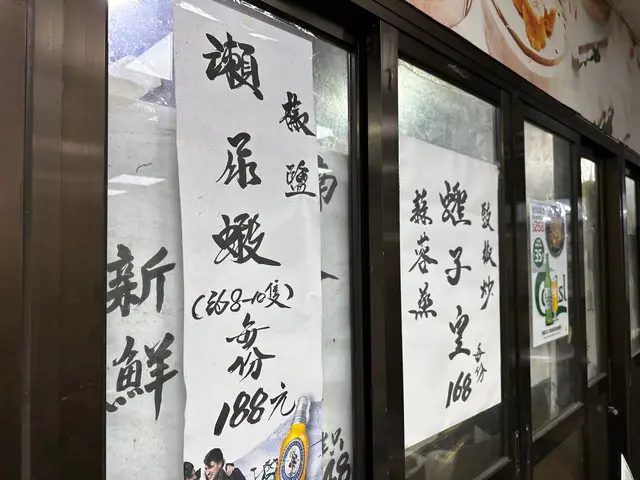 新鮮
椒鹽
瀨尿蝦
(約8-10隻)
每份
188元
豉椒炒
蟶子皇
蒜蓉蒸
每份
168